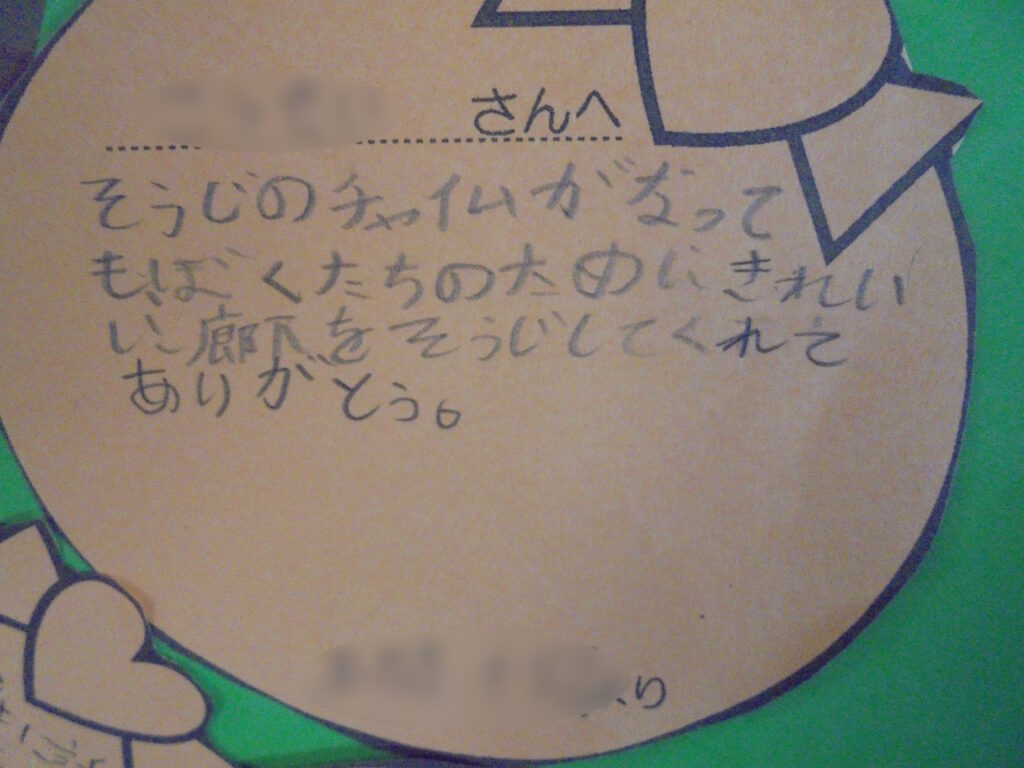 さんへ
そうじのチャイムがなって
もぼくたちのためにきれい
に廊下をそうじしてくれて
ありがとう。
より